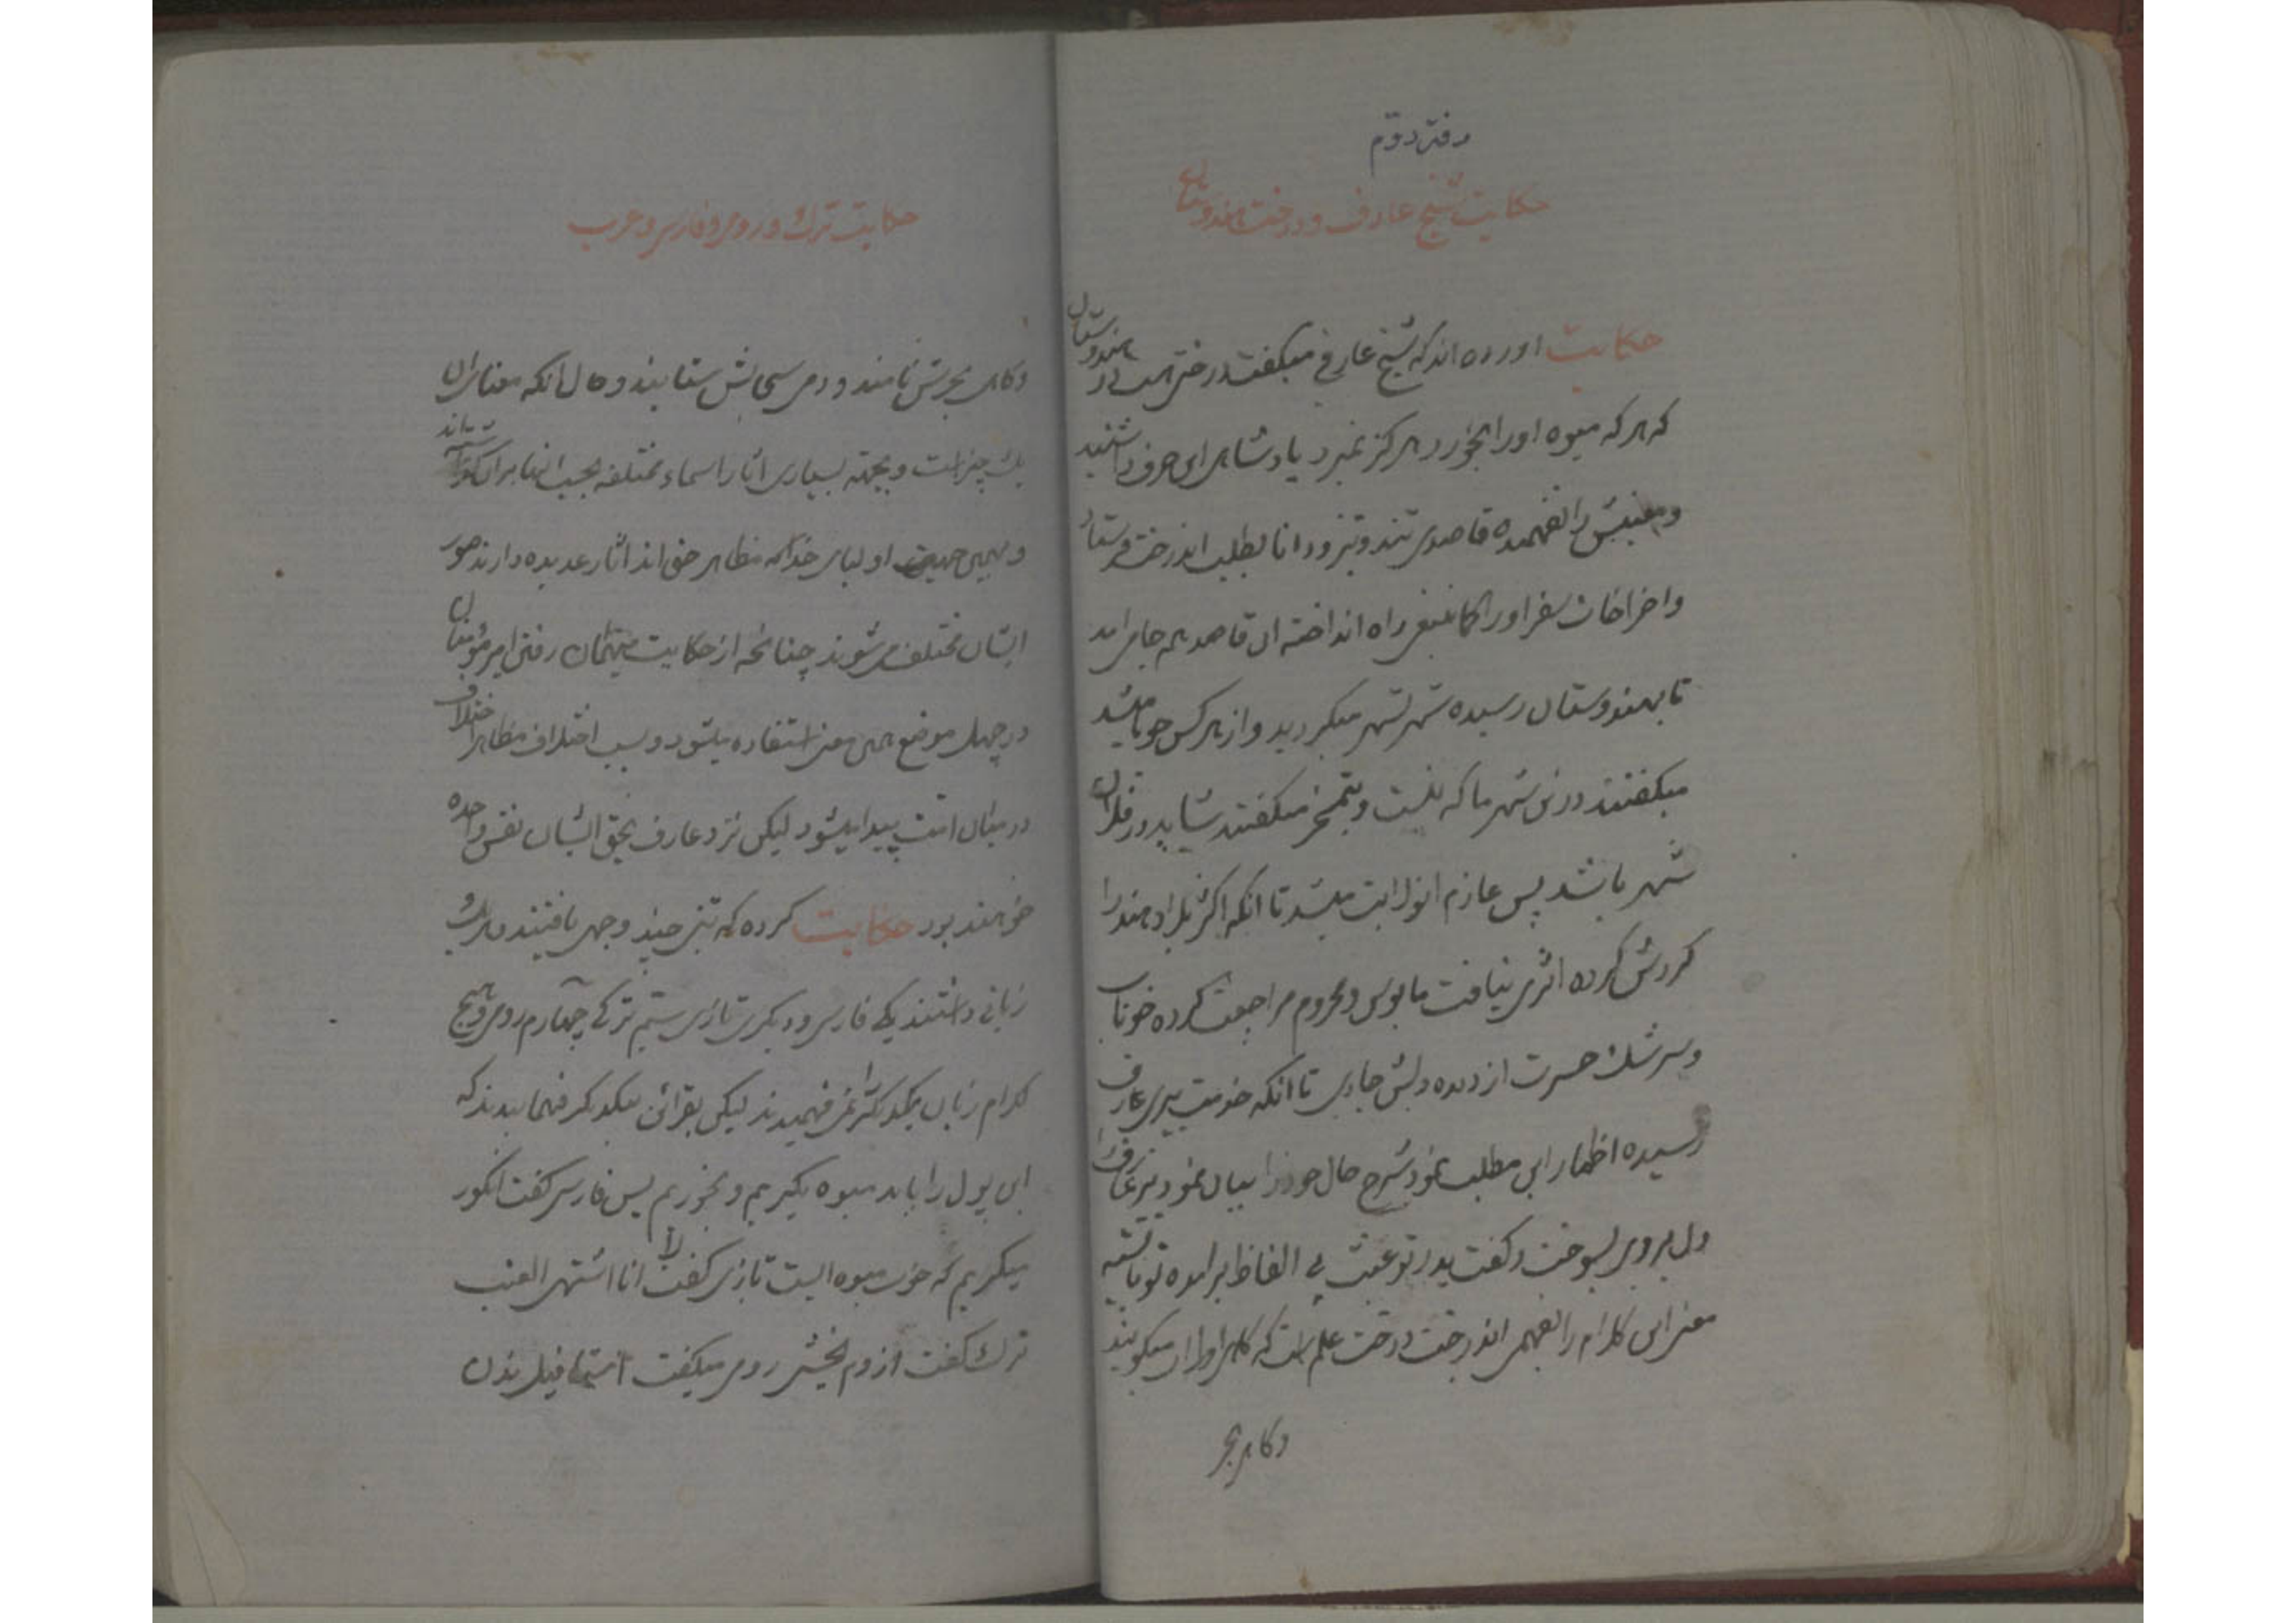 دفتر دوم
حکایت شیخ عارف و درخت هندوستان
حکایت اورده اند که شیخ عارفی میکفت درختی هست در هندوستان
که هر که میوه اورا بخورد هرکز نمیرد پادشاهی این حرف را شنید
و معنیش را نفهمیده قاصدی تند و تیز و دانا بطلب اندرخت فرستاد
و اخراجات سفر اورا کما ینبغی راه انداخته ان قاصد همه جا می امد
تا بهندوستان رسیده شهر بشهر میکردید و از هر کس جویا میشد
میکفتند در این شهر ما که نیست و بتمسخر میکفتند شاید در فلان
شهر باشد پس عازم انولایت میشد تا انکه اکثر بلاد هند را
کردش کرده اثری نیافت مایوس و محروم مراجعت کرده خوناب
و سرشک حسرت از دیده دلش جاری تا انکه خدمت پیری عارف
رسیده اظهار این مطلب نمود شرح حال خود را بیان نمود پیر عارف را
دل بر وی بسوخت و کفت پدر تو عقب الفاظ بر امده تو بایست
معنی این کلام را بفهمی اندرخت درخت علم است که کاهی اورا ان میکویند
و کاهی بحر
حکایت ترک و رومی و فارسی و عرب
و کاهی بحرش نامند و دمی سحابش ستایند و حال انکه معنای ان
یک چیز است و بجهة بسیاری اثار اسماء مختلفه بحسب انها بر ان
و بهمین جهت اولیای خدا که مظاهر حق اند اثار عدیده دارند صور
ایشان مختلف می شوند چنانچه از حکایت میهمان رفتن امیر مؤمنان
در چهل موضع همین معنی استفاده میشود و بسبب اختلاف مظاهر اختلاف
در میان امت پیدا میشود لیکن نزد عارف بحق ایشان نفس واحده
خواهند بود حکایت کرده که تنی چند وجهی یافتند و هر یک
زبانی داشتند یکی فارسی و دیکری تازی سیم ترکی چهارم رومی و هیچ
کدام زبان یکدیکر را نمی فهمیدند لیکن بقرائن بیکدیکر فهمانیدند که
این پول را باید میوه بکیریم و بخوریم پس فارسی کفت انکور
میکیریم که خوب میوه ایست تازی کفت لا انا اشتهی العنب
ترک کفت اوزوم یخشی رومی میکفت استافیل